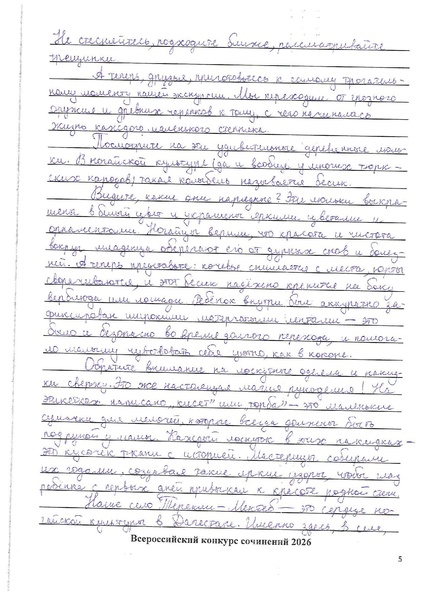 Не стесняйтесь, подходите ближе, рассматривайте
трещинки.
А теперь, друзья, приготовьтесь к самому трогатель-
ному моменту нашей экскурсии. Мы переходим от грозного
оружия и древних черепков к тому, с чего начиналась
жизнь каждого маленького степняка.
Посмотрите на эти удивительные деревянные люль-
ки. В ногайской культуре (да и вообще у многих тюрк-
ских народов) такая колыбель называется бесик.
Видите, какие они нарядные? Эти люльки выкра-
шены в белый цвет и украшены яркими цветами и
орнаментами. Ногайцы верили, что красота и чистота
вокруг младенца оберегают его от дурных снов и болез-
ней. А теперь представьте: кочевье снимается с места, юрты
сворачиваются, и этот бесик надёжно крепится на боку
верблюда или лошади. Ребёнок внутри был аккуратно за-
фиксирован широкими матерчатыми лентами – это
было и безопасно во время долгого перехода, и помога-
ло малышу чувствовать себя уютно, как в коконе.
Обратите внимание на лоскутные одеяла и
сверху. Это же настоящая магия рукоделия! На
написано „кисет" или торба" – это маленькие
сумочки для мелочей, которые всегда должны быть
под рукой у мамы. Каждый лоскуток в этих –
это кусочек ткани с историей. Мастерицы собирали
их годами, создавая такие яркие узоры, чтобы глаз
ребёнка с первых дней привыкал к красоте родной степи.
Наше село Терекли-Мектеб – это сердце но-
гайской культуры в Дагестане. Именно здесь, в селе,
Всероссийский конкурс сочинений 2026
5